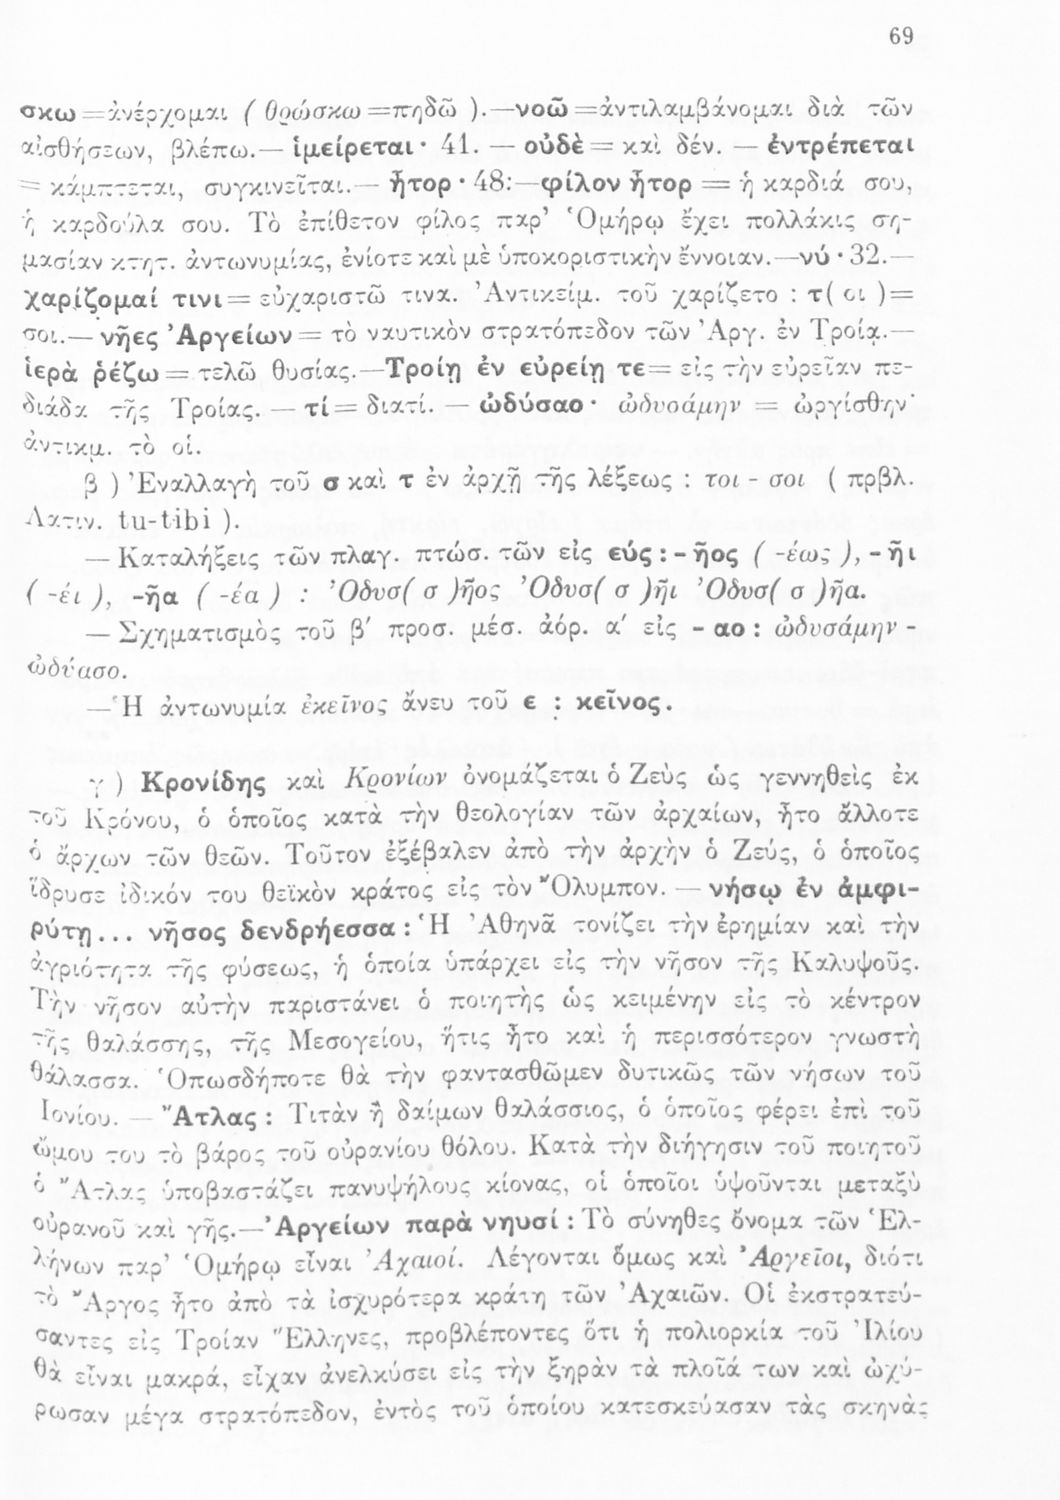 69
σκω=ἀνέρχομαι ( θρώσκω=πηδῶ ).—νοῶ=ἀντιλαμβάνομαι διὰ τῶν
αἰσθήσεων, βλέπω.— ἱμείρεται· 41. — οὐδὲ = καὶ δέν. — ἐντρέπεται
= κάμπτεται, συγκινεῖται.— ἦτορ · 48:—φίλον ἦτορ = ἡ καρδιά σου,
ἡ καρδούλα σου. Τὸ ἐπίθετον φίλος παρ’ Ὁμήρῳ ἔχει πολλάκις ση-
μασίαν κτητ. ἀντωνυμίας, ἐνίοτε καὶ μὲ ὑποκοριστικὴν ἔννοιαν.—νύ · 32.—
χαρίζομαί τινι= εὐχαριστῶ τινα. Ἀντικείμ. τοῦ χαρίζετο : τ( οι )=
σοι.— νῆες Ἀργείων= τὸ ναυτικὸν στρατόπεδον τῶν Ἀργ. ἐν Τροίᾳ.—
ἱερὰ ῥέζω= τελῶ θυσίας.—Τροίῃ ἐν εὐρείῃ τε= εἰς τὴν εὐρεῖαν πε-
διάδα τῆς Τροίας. — τί= διατί. — ὠδύσαο· ὠδυσάμην = ὠργίσθην·
ἀντικμ. τὸ οἱ.
β ) Ἐναλλαγὴ τοῦ σ καὶ τ ἐν ἀρχῇ τῆς λέξεως : τοι - σοι ( πρβλ.
Λατιν. tu-tibi ).
— Καταλήξεις τῶν πλαγ. πτώσ. τῶν εἰς εύς : - ῆος ( -έως ), - ῆι
( -έι ), -ῆα ( -έα ) : Ὀδυσ( σ )ῆος Ὀδυσ( σ )ῆι Ὀδυσ( σ )ῆα.
— Σχηματισμὸς τοῦ β′ προσ. μέσ. ἀόρ. α′ εἰς - αο : ὠδυσάμην -
ὠδύασο.
—Ἡ ἀντωνυμία ἐκεῖνος ἄνευ τοῦ ε : κεῖνος.
γ ) Κρονίδης καὶ Κρονίων ὀνομάζεται ὁ Ζεὺς ὡς γεννηθεὶς ἐκ
τοῦ Κρόνου, ὁ ὁποῖος κατὰ τὴν θεολογίαν τῶν ἀρχαίων, ἦτο ἄλλοτε
ὁ ἄρχων τῶν θεῶν. Τοῦτον ἐξέβαλεν ἀπὸ τὴν ἀρχὴν ὁ Ζεύς, ὁ ὁποῖος
ἵδρυσε ἰδικόν του θεϊκὸν κράτος εἰς τὸν Ὄλυμπον. — νήσῳ ἐν ἀμφι-
ρύτῃ... νῆσος δενδρήεσσα : Ἡ Ἀθηνᾶ τονίζει τὴν ἐρημίαν καὶ τὴν
ἀγριότητα τῆς φύσεως, ἡ ὁποία ὑπάρχει εἰς τὴν νῆσον τῆς Καλυψοῦς.
Τὴν νῆσον αὐτὴν παριστάνει ὁ ποιητὴς ὡς κειμένην εἰς τὸ κέντρον
τῆς θαλάσσης, τῆς Μεσογείου, ἥτις ἦτο καὶ ἡ περισσότερον γνωστὴ
θάλασσα. Ὁπωσδήποτε θὰ τὴν φαντασθῶμεν δυτικῶς τῶν νήσων τοῦ
Ἰονίου. — Ἄτλας : Τιτὰν ἢ δαίμων θαλάσσιος, ὁ ὁποῖος φέρει ἐπὶ τοῦ
ὤμου του τὸ βάρος τοῦ οὐρανίου θόλου. Κατὰ τὴν διήγησιν τοῦ ποιητοῦ
ὁ Ἄτλας ὑποβαστάζει πανυψήλους κίονας, οἱ ὁποῖοι ὑψοῦνται μεταξὺ
οὐρανοῦ καὶ γῆς.—Ἀργείων παρὰ νηυσί : Τὸ σύνηθες ὄνομα τῶν Ἑλ-
λήνων παρ’ Ὁμήρῳ εἶναι Ἀχαιοί. Λέγονται ὅμως καὶ Ἀργεῖοι, διότι
τὸ Ἄργος ἦτο ἀπὸ τὰ ἰσχυρότερα κράτη τῶν Ἀχαιῶν. Οἱ ἐκστρατεύ-
σαντες εἰς Τροίαν Ἕλληνες, προβλέποντες ὅτι ἡ πολιορκία τοῦ Ἰλίου
θὰ εἶναι μακρά, εἶχαν ἀνελκύσει εἰς τὴν ξηρὰν τὰ πλοῖά των καὶ ὠχύ-
ρωσαν μέγα στρατόπεδον, ἐντὸς τοῦ ὁποίου κατεσκεύασαν τὰς σκηνὰς